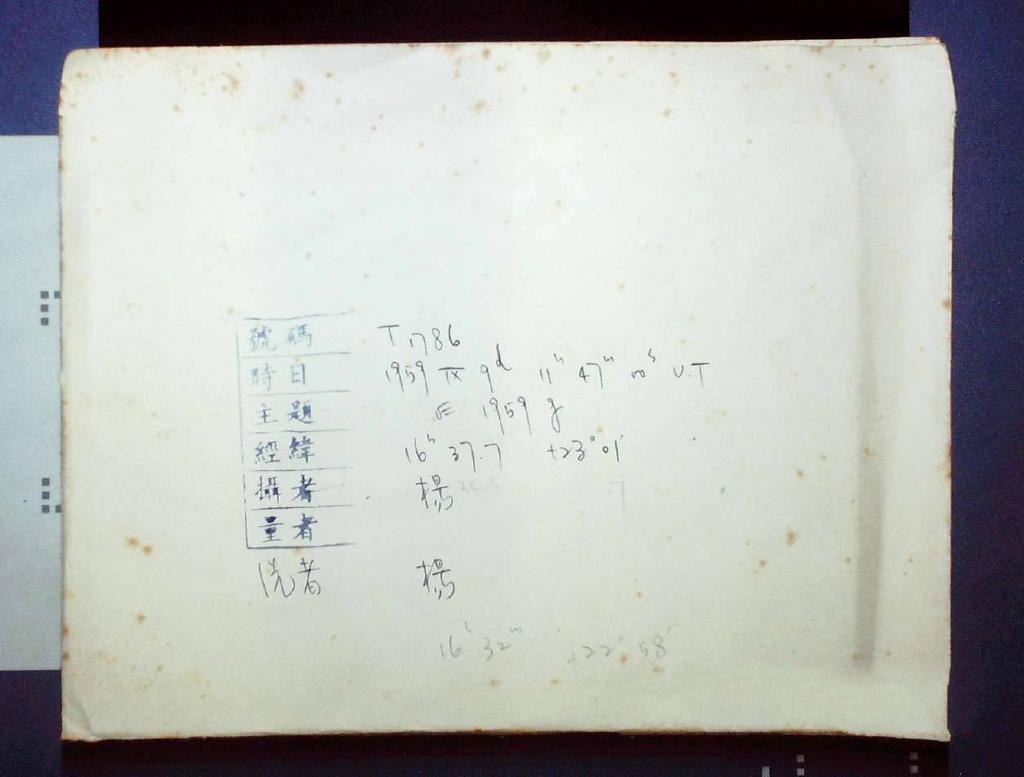 號碼 T 1786
時日 1959 IX 9d 11h 47m 00s U.T
主題 1959
經緯 16h 37.7 +23° 01'
攝者 楊
量者
洗者 楊
16h 32m +22° 58'